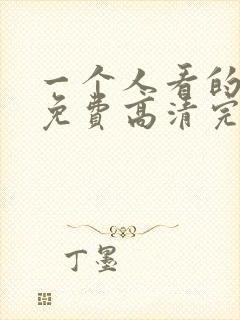 一个人看的
免费高清完
丁墨